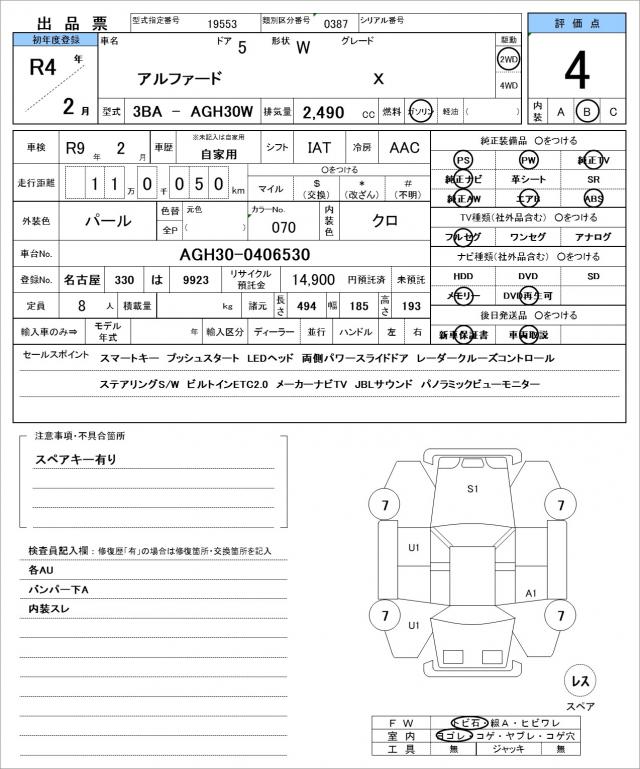 出品票 型式指定番号 19553 類別区分番号 0387 シリアル番号
評価点
初年度登録 車名 ドア 5 形状 W グレード 駆動
R4 年 アルファード X 2WD 4WD 4
2 月 型式 3BA － AGH30W 排気量 2,490 cc 燃料 ガソリン 軽油 ( ) 内装 A B C
車検 R9 年 2 月 車歴 ※未記入は自家用 自家用 シフト IAT 冷房 AAC
純正装備品 〇をつける
PS PW 純正TV
走行距離 1 1 万 0 千 0 5 0 km 〇をつける マイル $ (交換) * (改ざん) # (不明)
純正ナビ 革シート SR
純正AW エアB ABS
外装色 パール 色替 全P 元色 ( ) カラーNo. 070 内装色 クロ
TV種類(社外品含む) 〇をつける
フルセグ ワンセグ アナログ
車台No. AGH30-0406530
ナビ種類(社外品含む) 〇をつける
登録No. 名古屋 330 は 9923 リサイクル預託金 14,900 円預託済 未預託
HDD DVD SD
定員 8 人 積載量 kg 諸元 長さ 494 幅 185 高さ 193
メモリー DVD再生可
後日発送品 〇をつける
輸入車のみ⇒ モデル年式 年 輸入区分 ディーラー 並行 ハンドル 左 右
新車保証書 車両取説
セールスポイント スマートキー プッシュスタート LEDヘッド 両側パワースライドドア レーダークルーズコントロール
ステアリングS/W ビルトインETC2.0 メーカーナビTV JBLサウンド パノラミックビューモニター
注意事項・不具合箇所
スペアキー有り
検査員記入欄：修復歴「有」の場合は修復箇所・交換箇所を記入
各AU
バンパー下A
内装スレ
S1
7 7
U1
A1
7 U1 7
レス
スペア
FW トビ石・線A・ヒビワレ
室内 ヨゴレ・コゲ・ヤブレ・コゲ穴
工具 無 ジャッキ 無